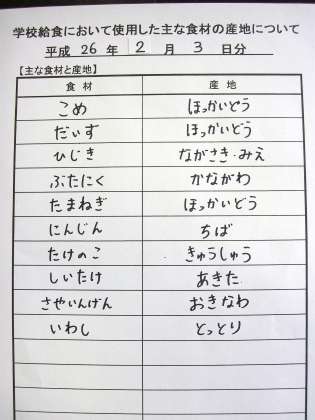 学校給食において使用した主な食材の産地について
平成 26 年 2 月 3 日分
【主な食材と産地】
食材 産地
こめ ほっかいどう
だいず ほっかいどう
ひじき ながさき・みえ
ぶたにく かながわ
たまねぎ ほっかいどう
にんじん ちば
たけのこ きゅうしゅう
しいたけ あきた
さやいんげん おきなわ
いわし とっとり